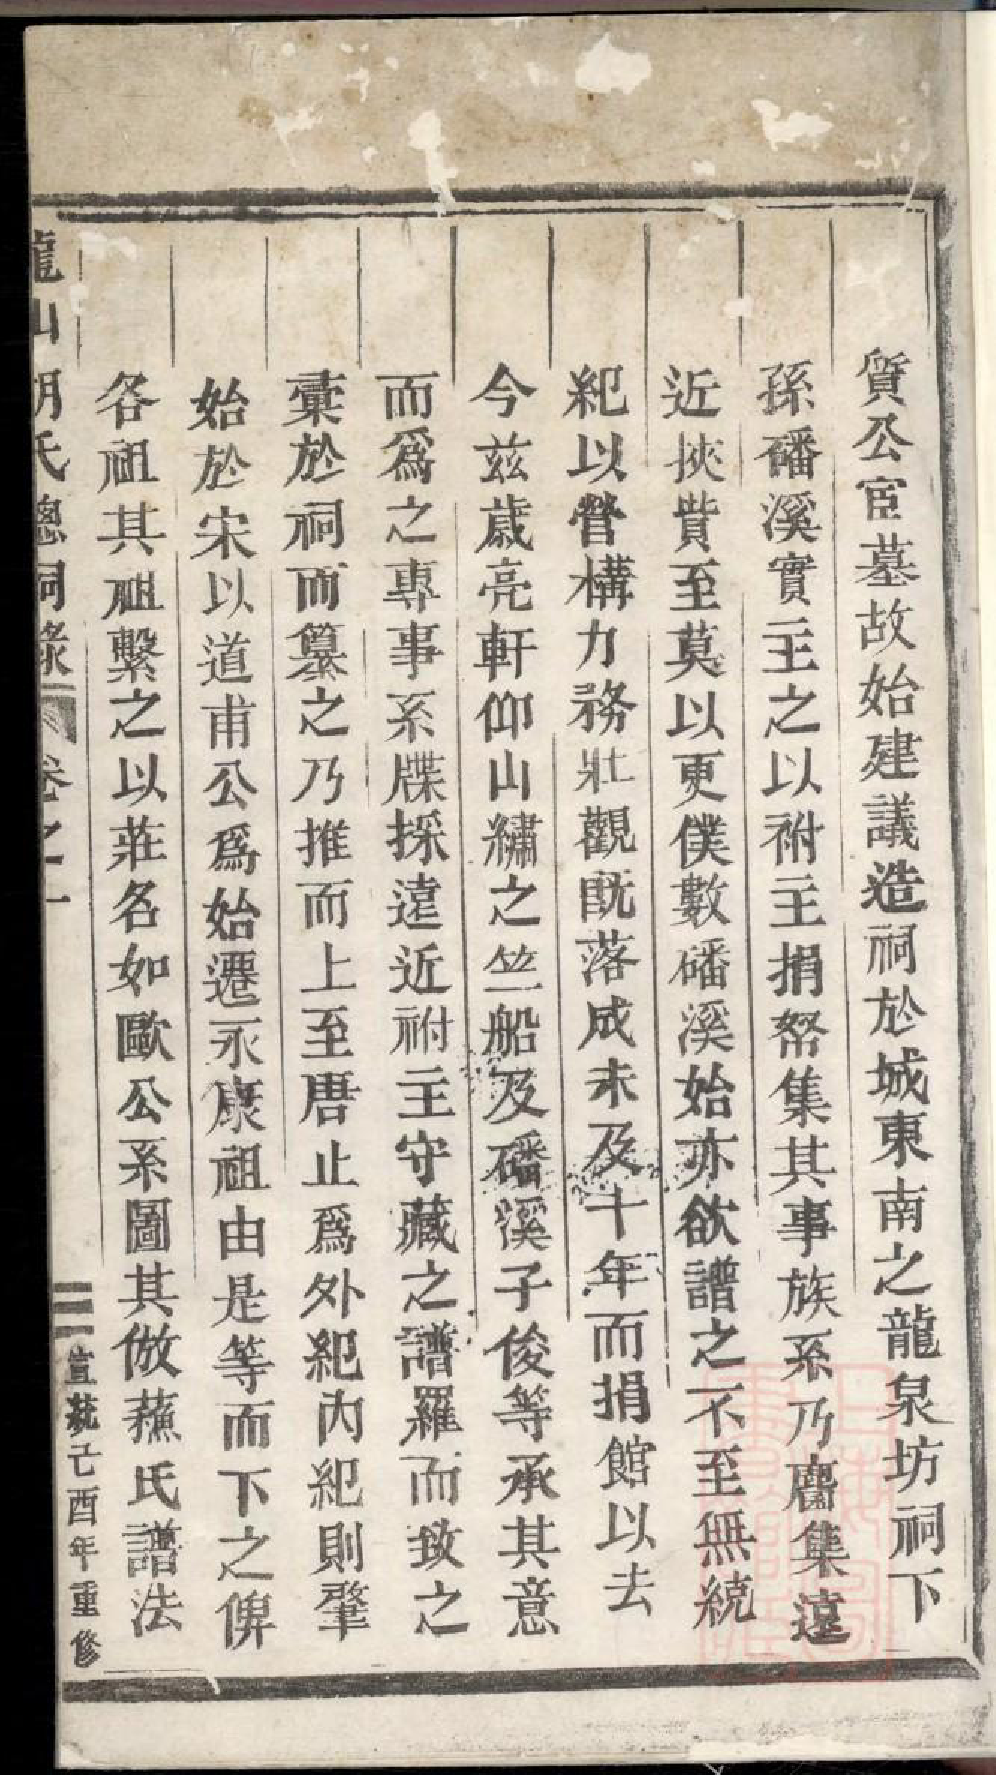 質公宦墓故始建議造祠於城東南之龍泉坊祠下
孫磻溪實主之以祔主捐帑集其事族系乃麕集遠
近挾貲至莫以更僕數磻溪始亦欲譜之不至無統
紀以營構力務壯觀既落成未及十年而捐館以去
今茲歲亮軒仰山繡之竺船及磻溪子俊等承其意
而爲之專事系牒採遠近祔主守藏之譜羅而致之
彙於祠而纂之乃推而上至唐止爲外紀內紀則肇
始於宋以道甫公爲始遷永康祖由是等而下之俾
各祖其祖繫之以莊名如歐公系圖其倣蘇氏譜法
龍山胡氏總祠錄 卷之一
宣統己酉年重修